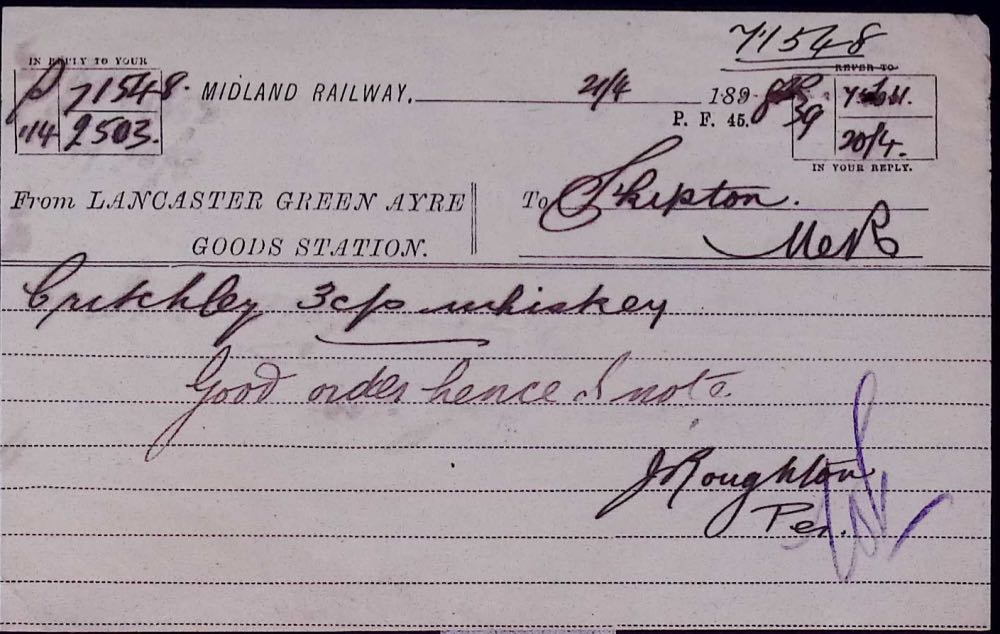 71548
IN REPLY TO YOUR
REFER TO
P 71548.
MIDLAND RAILWAY, 21/4 189
P. F. 45.
39
14 2503.
20/4.
IN YOUR REPLY.
From LANCASTER GREEN AYRE
GOODS STATION.
To Skipton.
MeR
Critchley 3 c/s whiskey
Good order hence & note
J Roughton
Per.